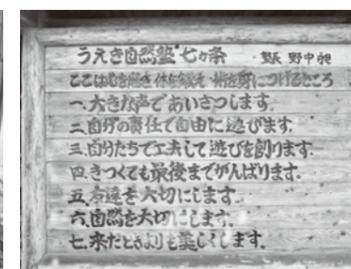 うえき自然塾 七ヶ条 塾長 野中 昶
ここは心を磨き 体を鍛え 術を身につけるところ
一.大きな声であいさつします。
二.自分の責任で自由に遊びます。
三.自分たちで工夫して遊びを創ります。
四.きつくても最後までがんばります。
五.友達を大切にします。
六.自然を大切にします。
七.来たときよりも美しくします。